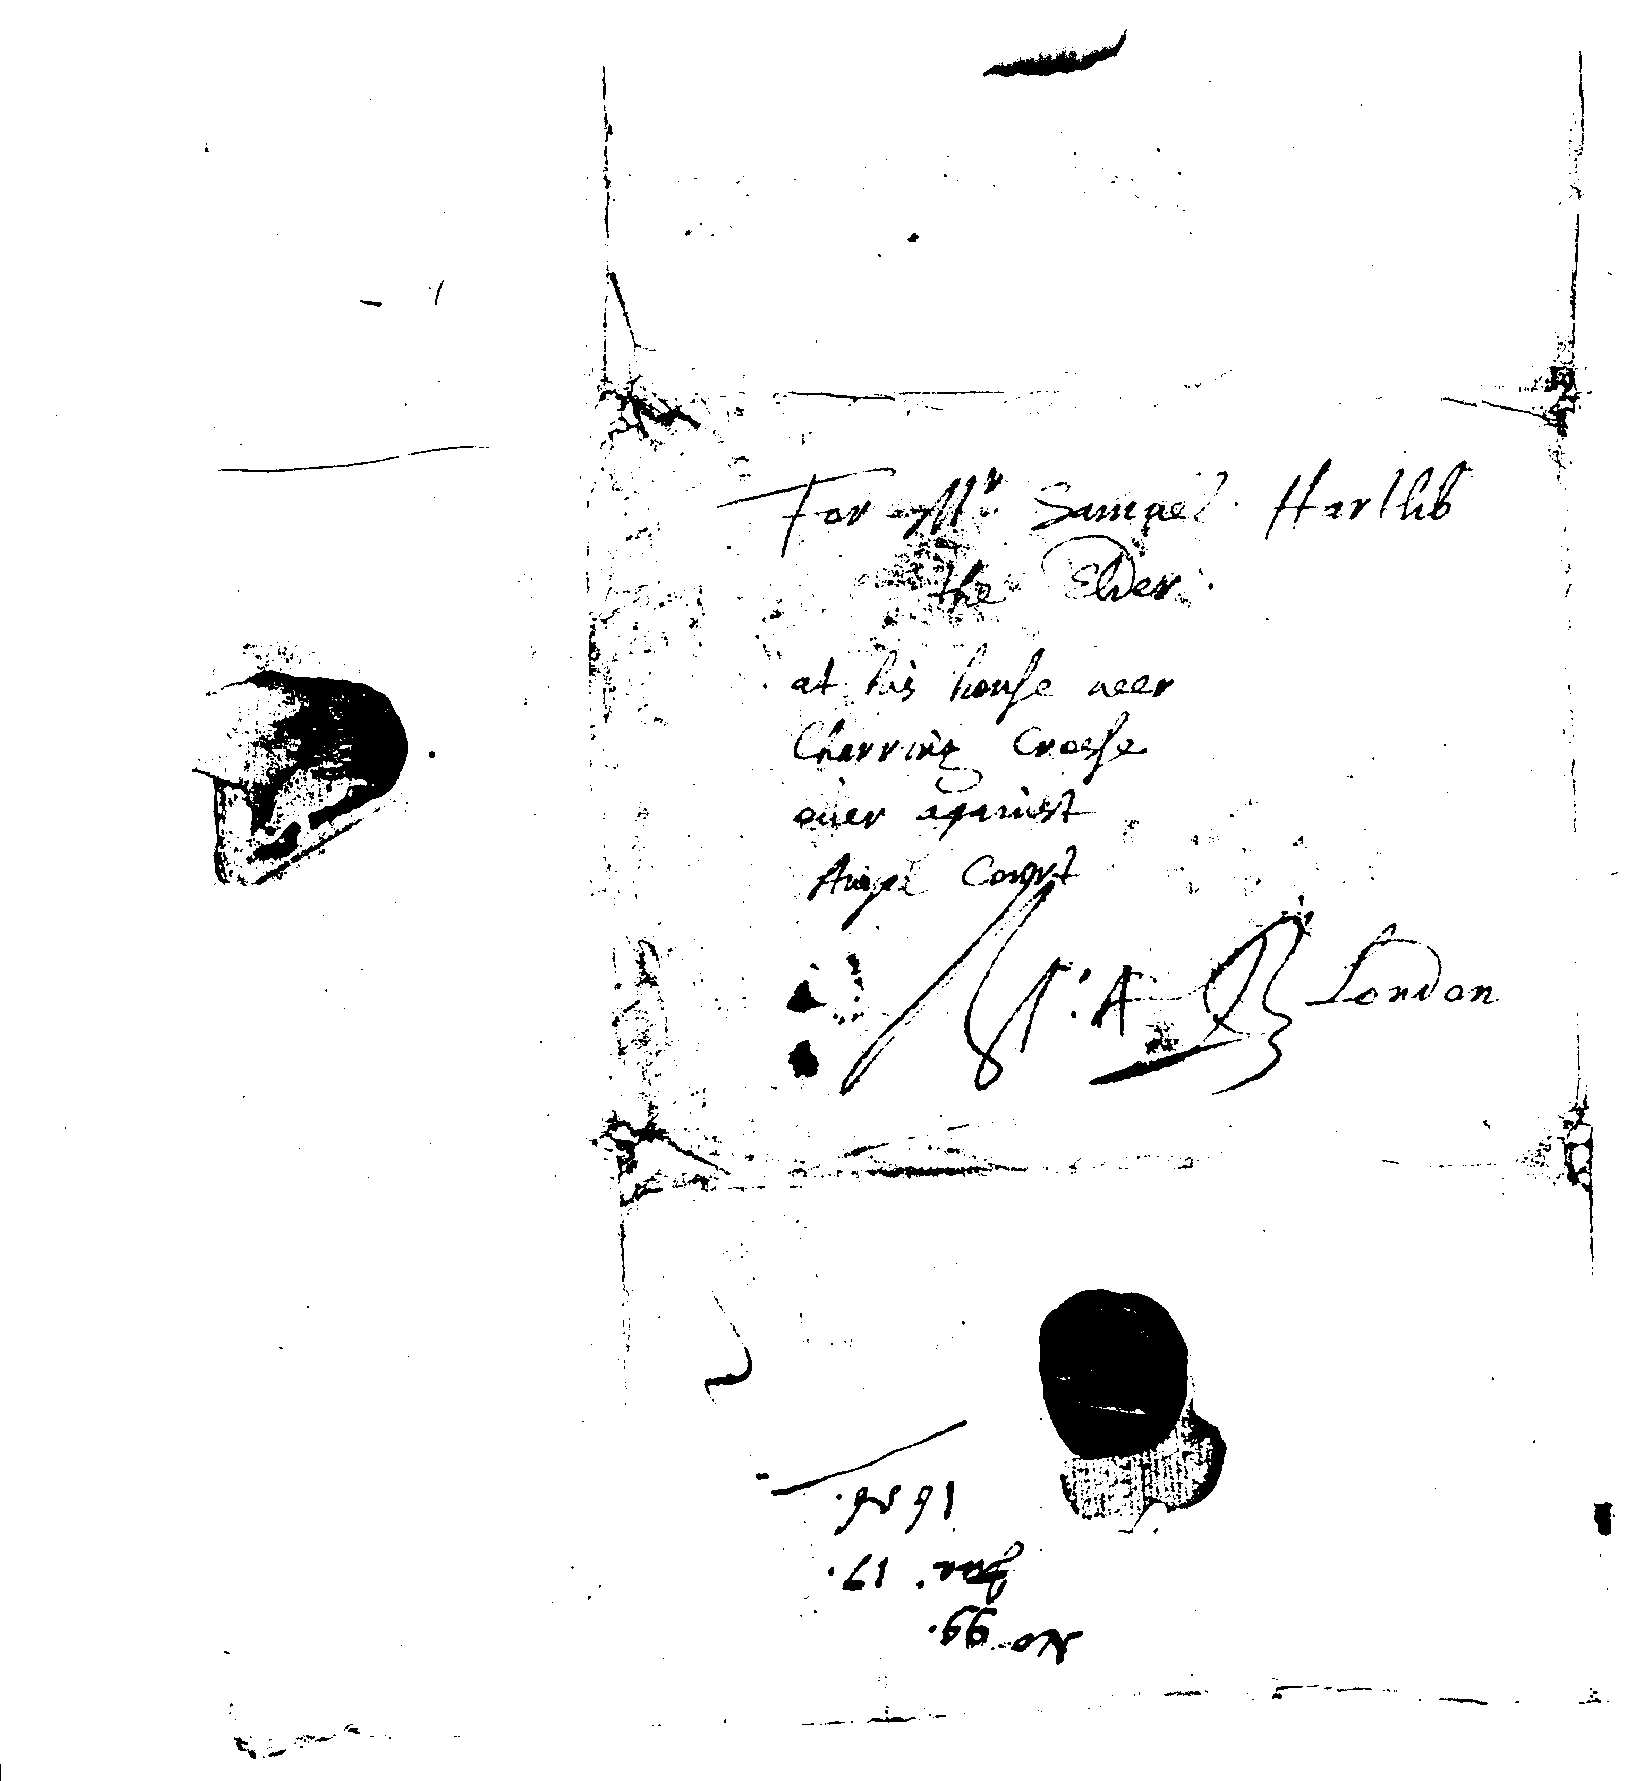 For Mr Samuel Hartlib
the Elder.
at his house neer
Charring Crosse
ouer against
Angel Court
London
No 99.
Jan. 17.
1656.